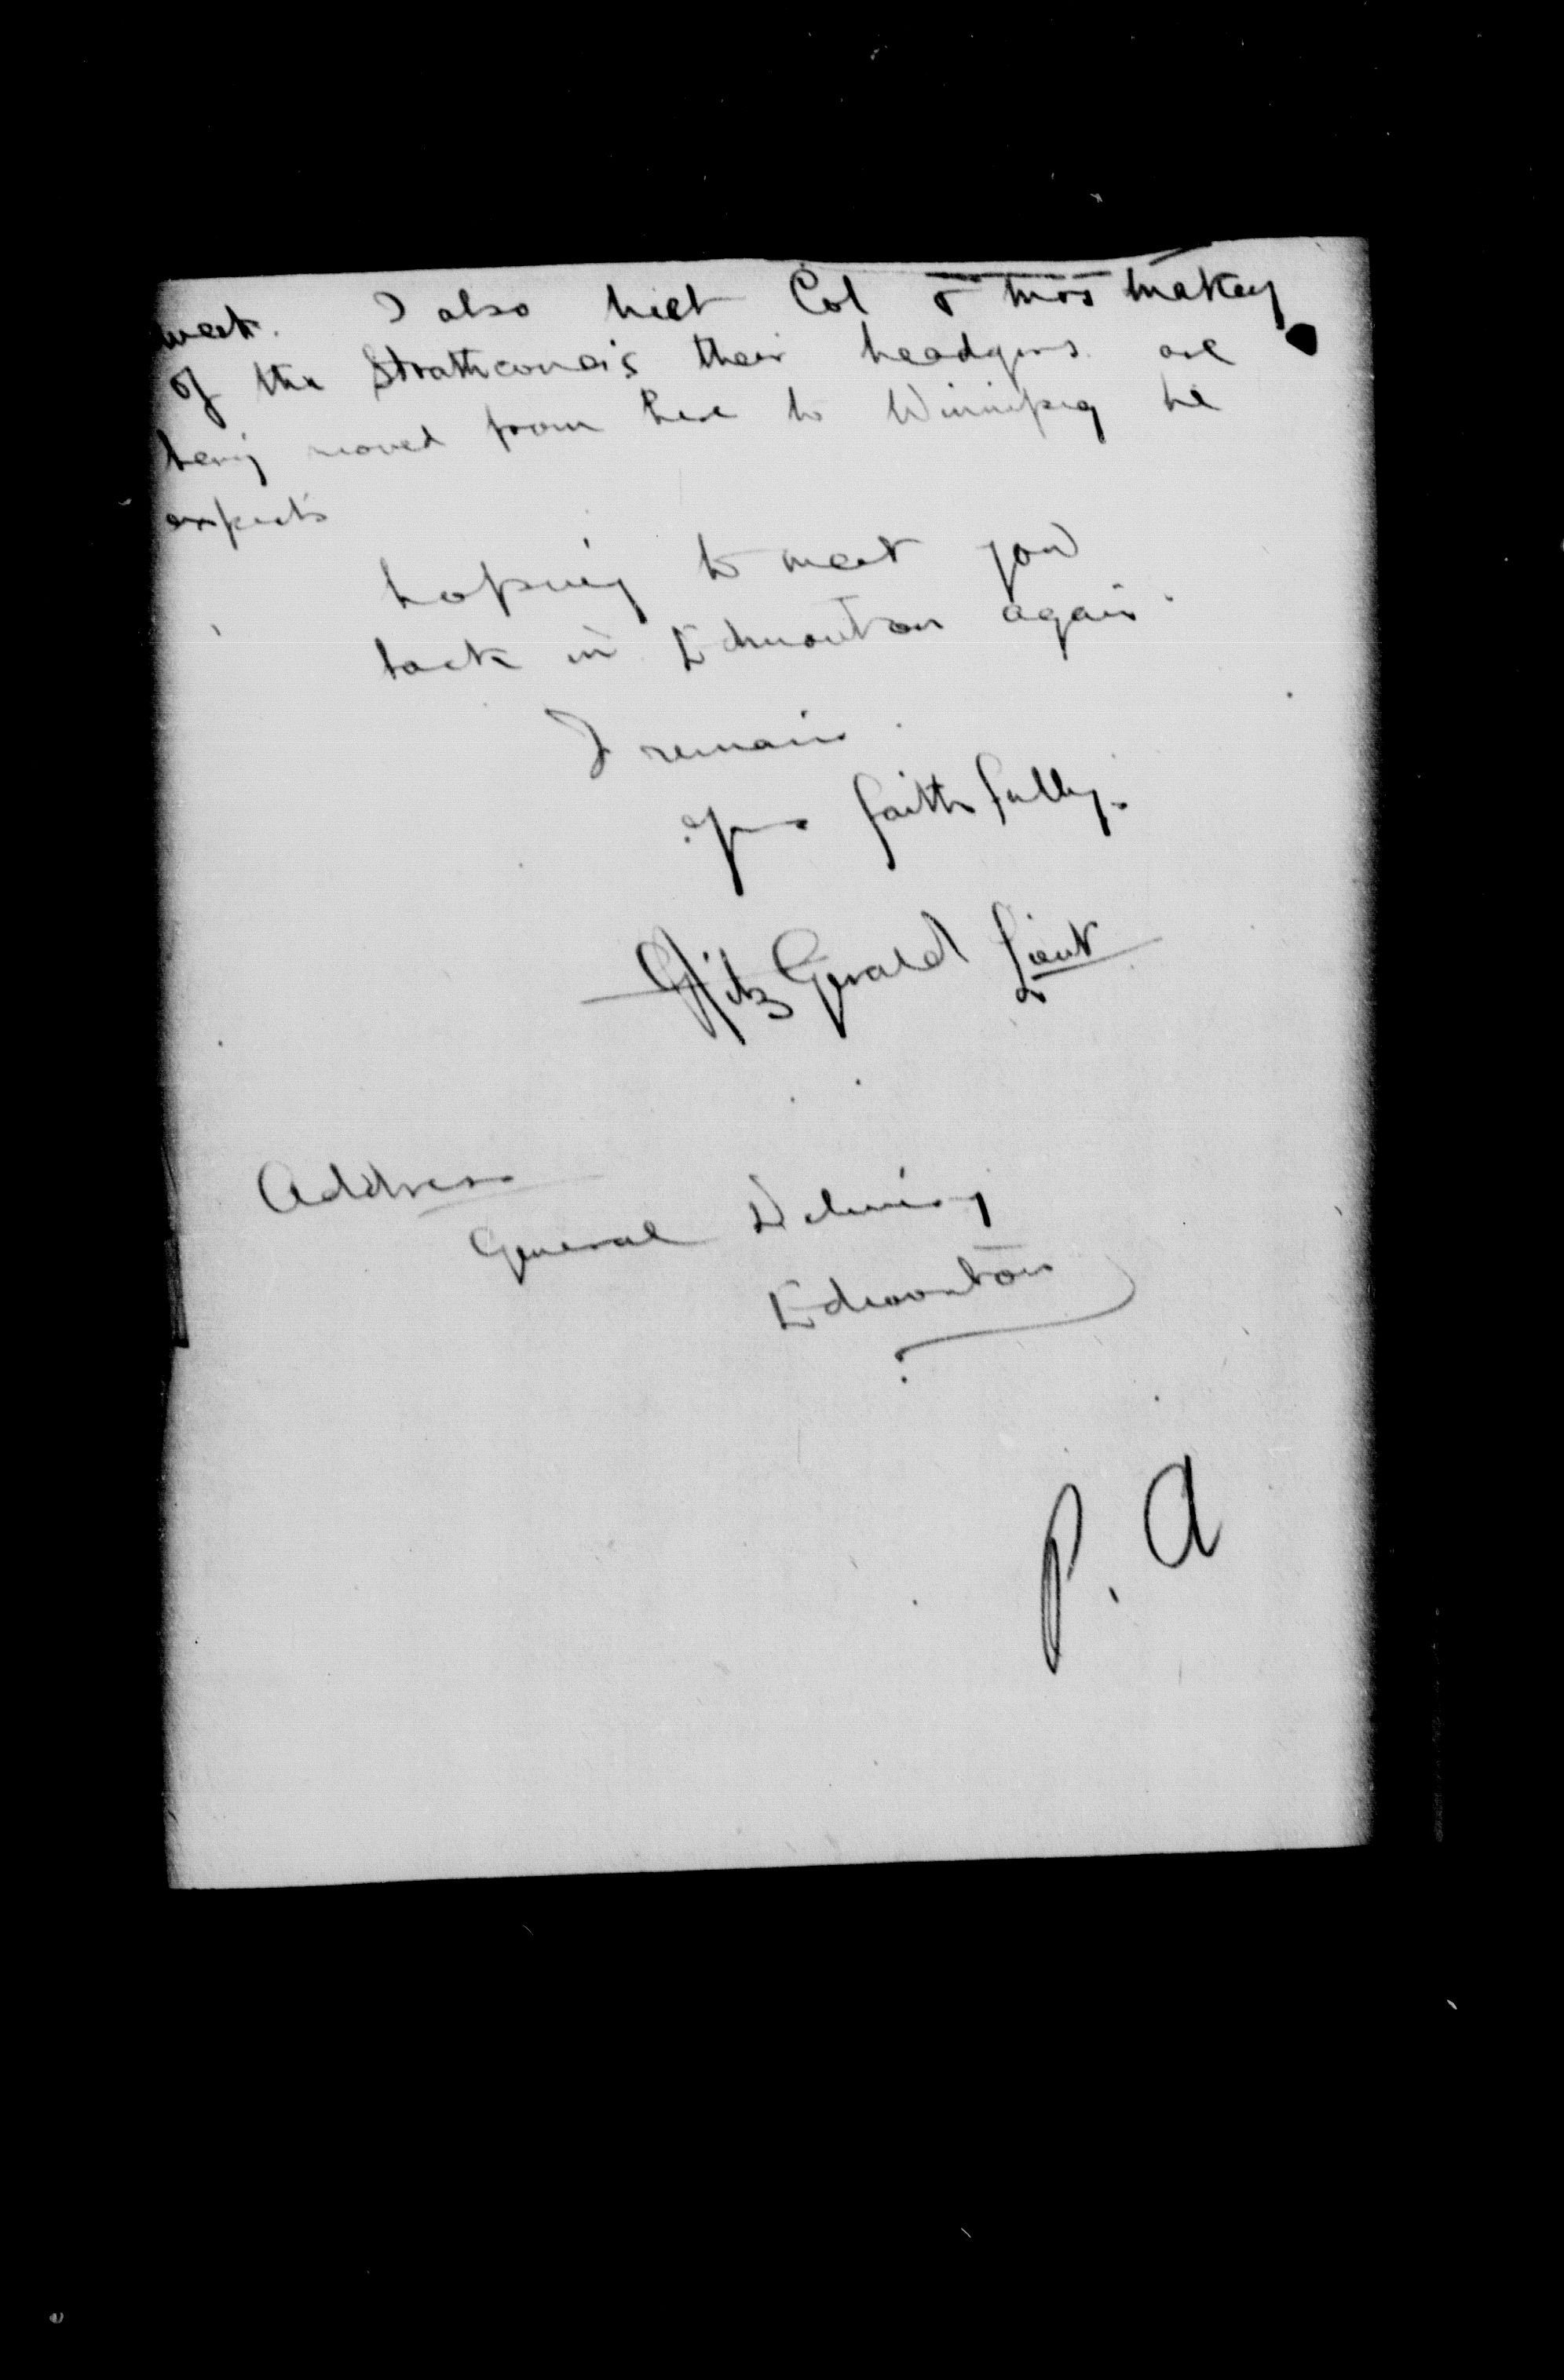 week. I also met Col & Mrs Makey
of the Strathcona's their headqrs. are
being moved from here to Winnipeg he
expects
hoping to meet you
back in Edmonton again
I remain
yrs faithfully.
FitzGerald Lieut
Address
General Delivery
Edmonton
P. A